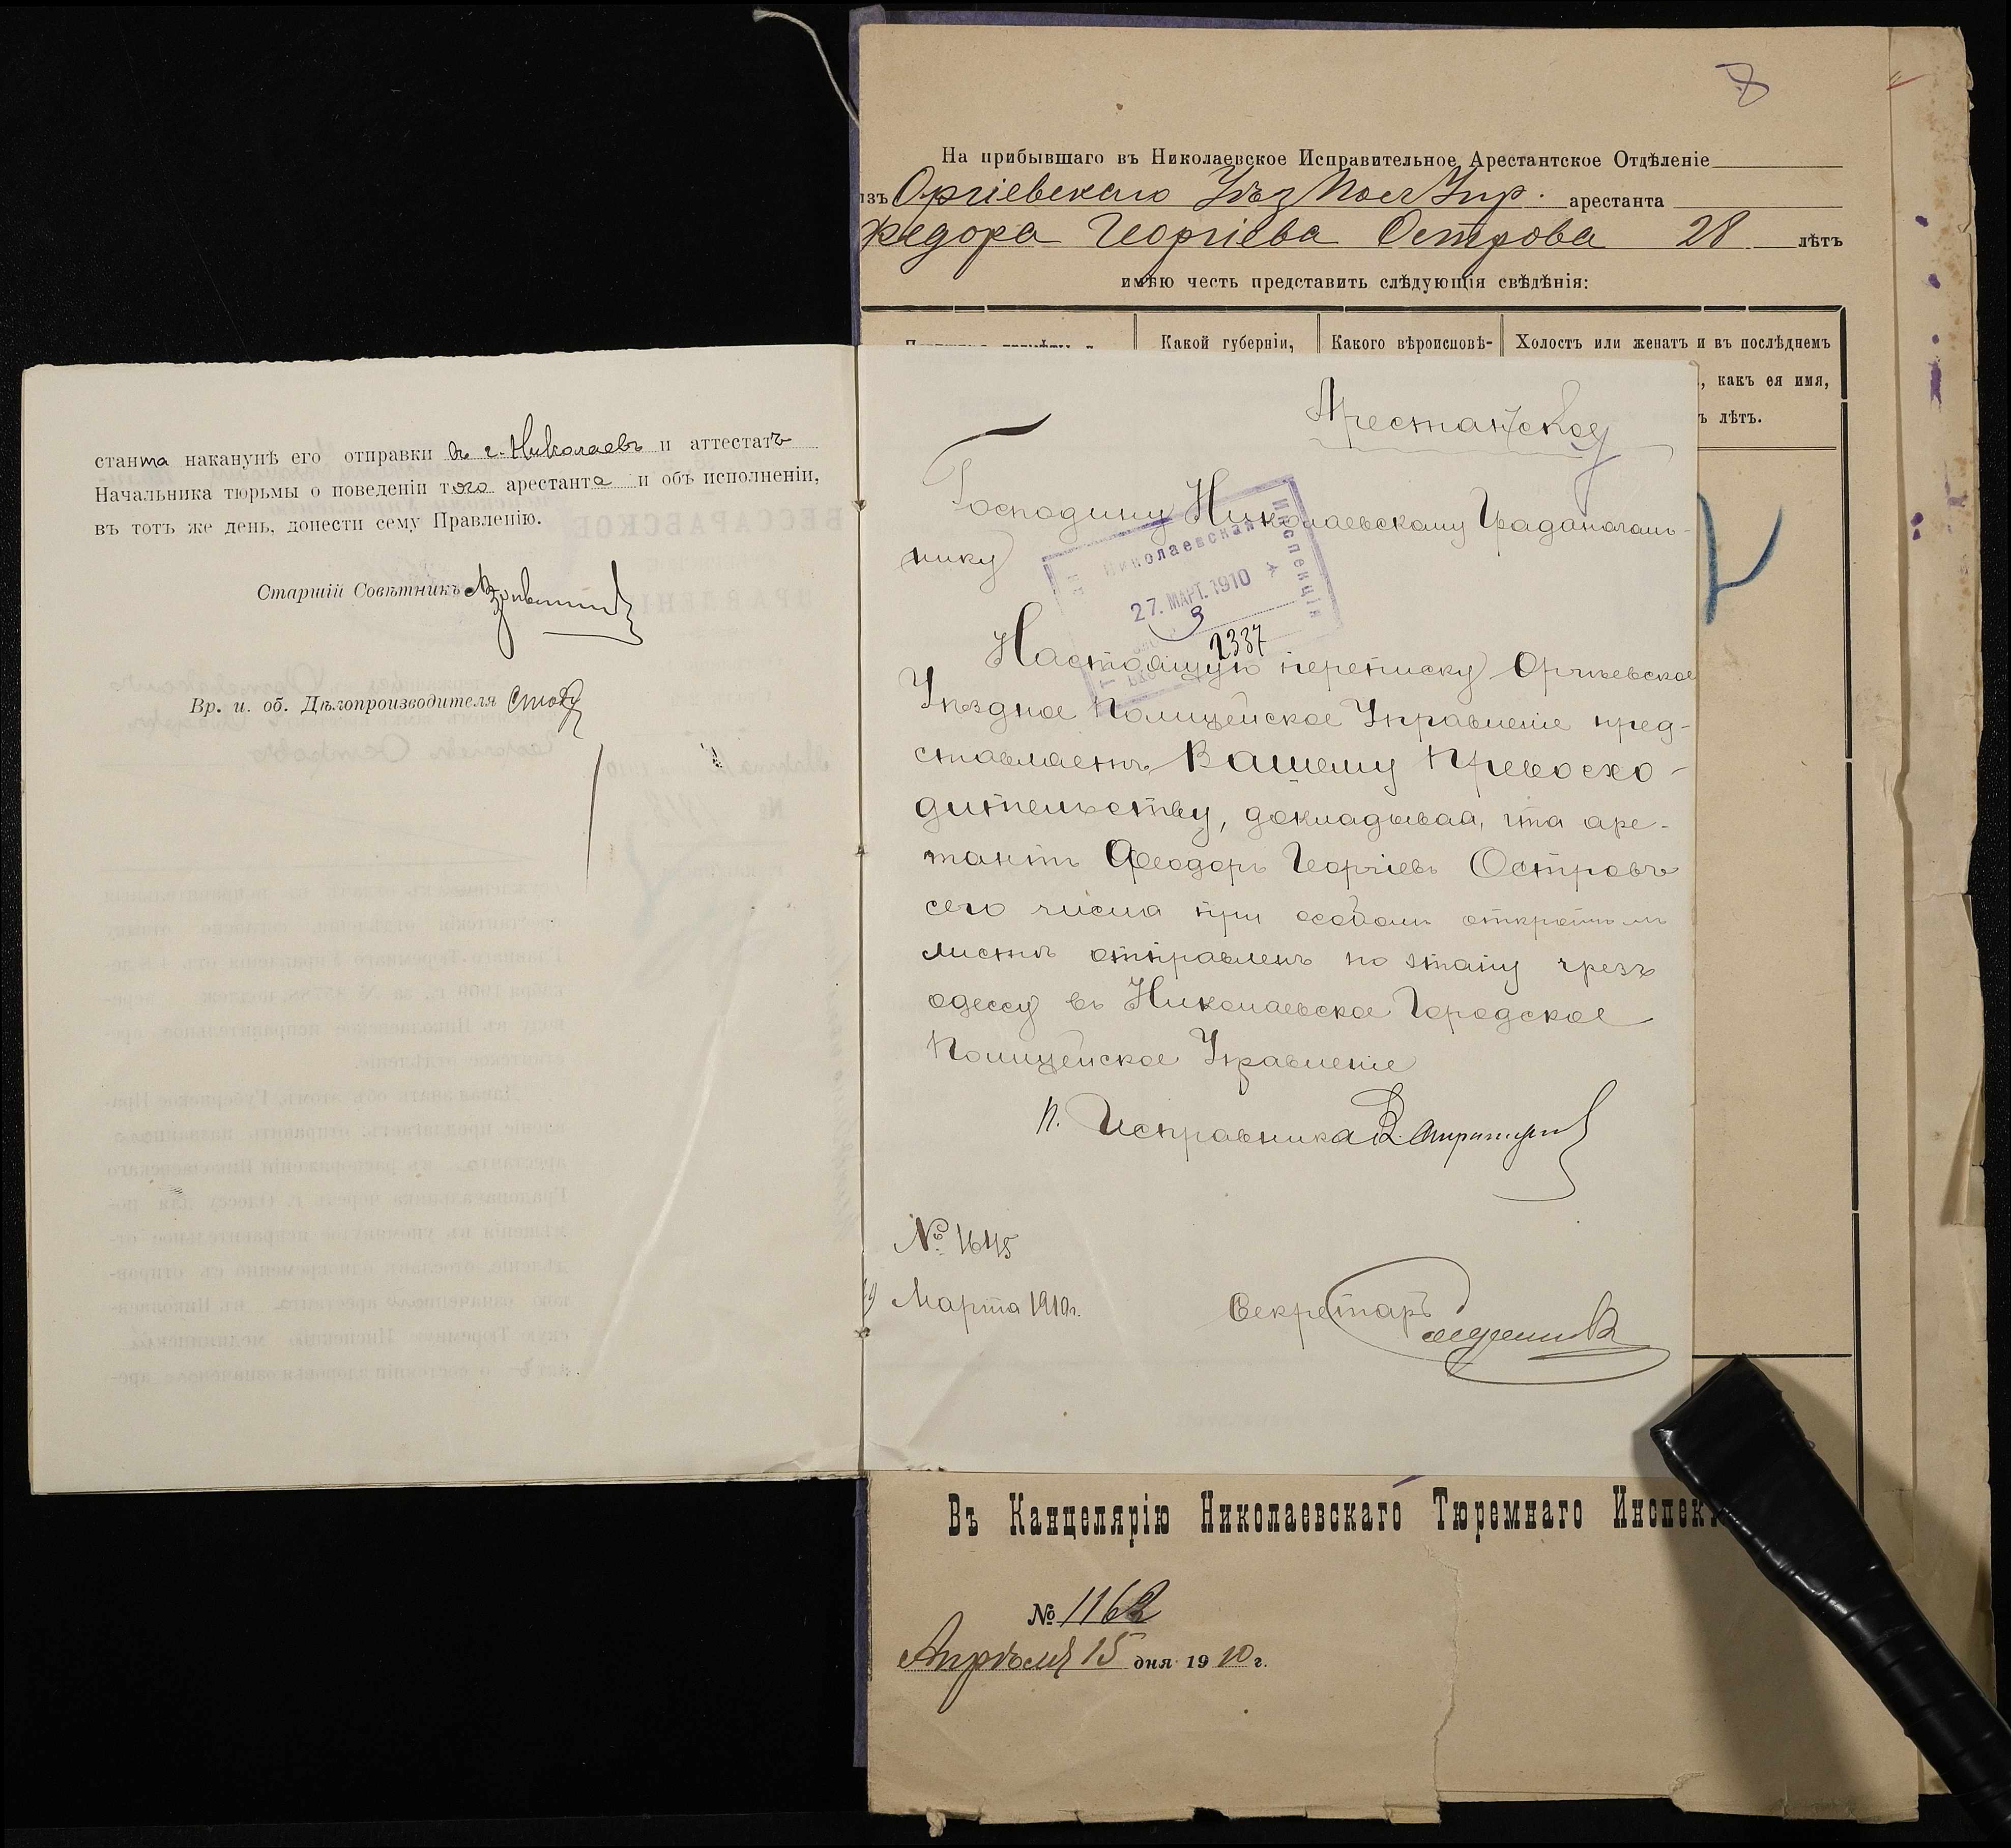 станта наканунѣ его отправки въ г. Николаевъ и аттестатъ
Начальника тюрьмы о поведеніи того арестанта и объ исполненіи,
въ тотъ же день, донести сему Правленію.
Старшій Совѣтникъ
Вр. и. об. Дѣлопроизводителя
На прибывшаго въ Николаевское Исправительное Арестантское Отдѣленіе
изъ Оргіевскаго Уѣз Пол Упр. арестанта
Федора Георгіева Острова 28 лѣтъ
имѣю честь представить слѣдующія свѣдѣнія:
Какой губерніи,
Какого вѣроисповѣ-
Холостъ или женатъ и въ послѣднемъ
какъ ея имя,
лѣтъ.
Арестантскому
Господину Николаевскому Градоначаль-
нику
Николаевская
Инспекція
27. МАРТ. 1910
2337
Настоящую переписку Оргѣевское
Уѣздное Полицейское Управленіе пред-
ставляетъ Вашему Превосхо-
дительству, докладывая, что аре-
тантъ Феодоръ Георгіевъ Островъ
сего числа при особомъ открытомъ
листѣ отправленъ по этапу чрезъ
Одессу въ Николаевское Городское
Полицейское Управленіе
П. Исправника
№ 1645
19 Марта 1910г.
Секретарь
Въ Канцелярію Николаевскаго Тюремнаго Инспек
№ 1162
Апрѣля 15 дня 1910 г.